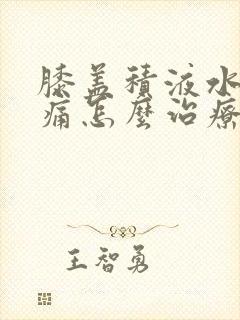 膝盖積液水
痛怎麼治療
王智勇